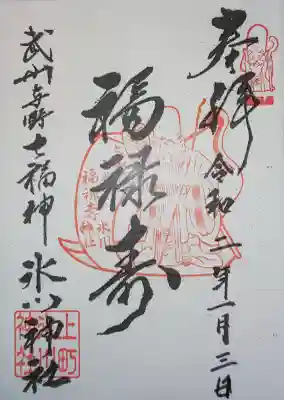 奉拝
令和二年一月三日
福禄寿
武州与野七福神
氷川神社
上町